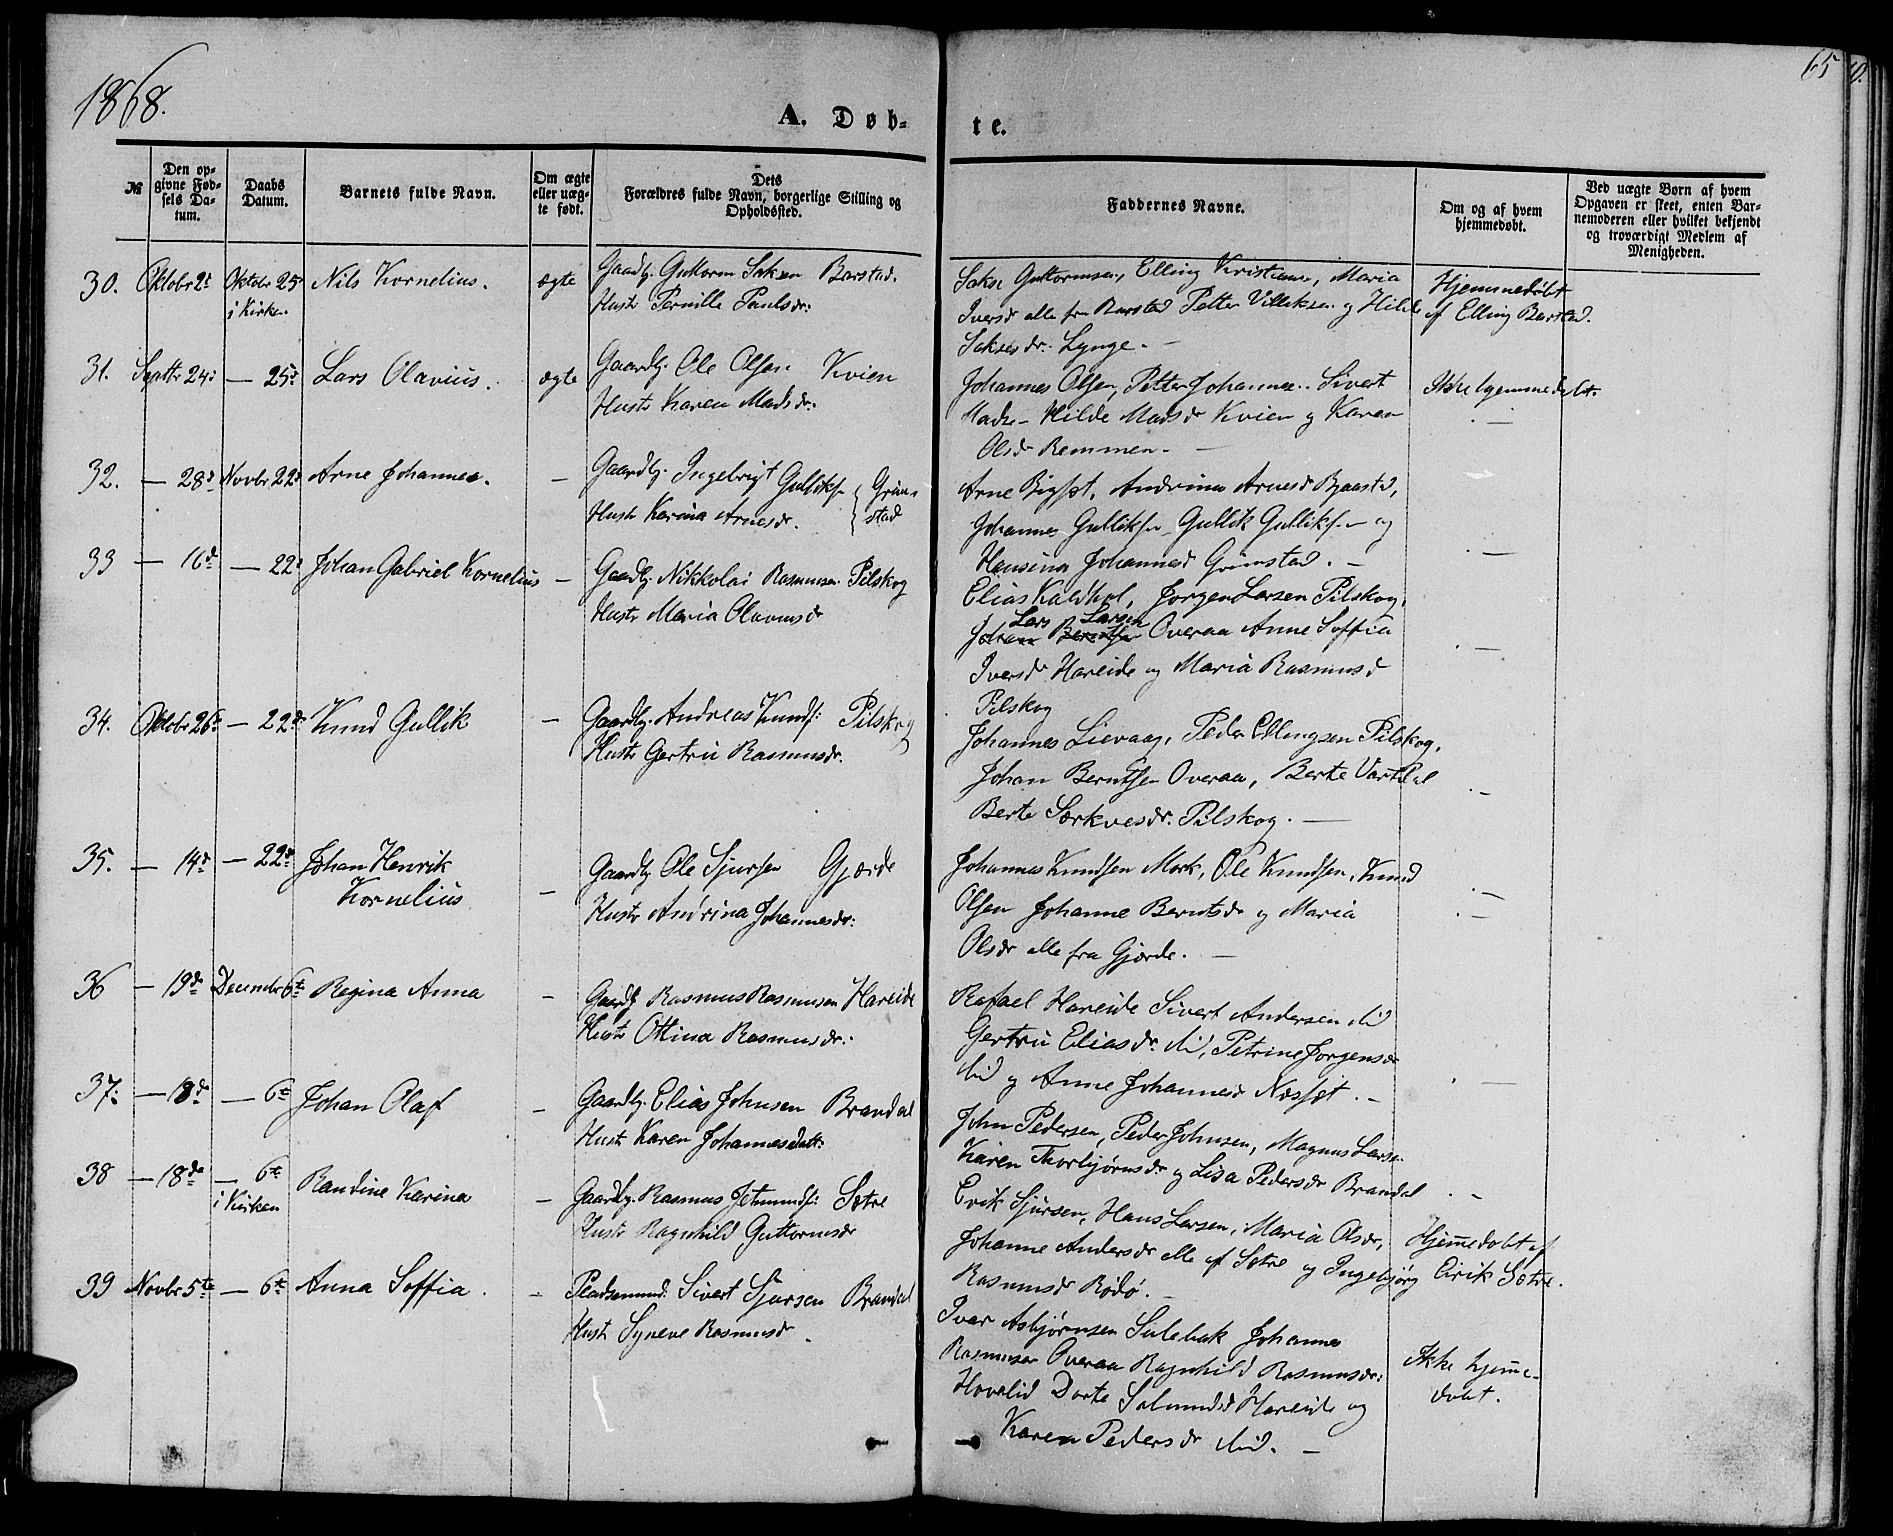 1868.
65
A. Døb-
te.
№
Den op-
givne Fød-
sels Da-
tum.
Daabs
Datum.
Barnets fulde Navn.
Om ægte
eller uæg-
te født.
Dets
Forældres fulde Navn, borgerlige Stilling og
Opholdssted.
Faddernes Navne.
Om og af hvem
hjemmedøbt.
Ved uægte Børn af hvem
Opgaven er skeet, enten Bar-
nemoderen eller hvilket bekjendt
og troværdigt Medlem af
Menigheden.
30. Oktobr 2d Oktobr 25d Nils Kornelius. ægte Gaardbr. Guttorm Saksen Barstad.
i Kirken Hustr Pernille Paulsdr:
Sakse Guttormsen, Elling Kristianse, Maria
Iversdr alle fra Barstad Petter Villiksen og Hilde
Saksesdr. Lynge. -
Hjemmedøbt
af Elling Barstad.
31. Septbr 24d — 25d Lars Olavius. ægte Gaardbr. Ole Olsen Kvien
Hustr Karen Madsdr:
Johannes Olsen, Petter Johannes.. Sivert
Madse- Hilde Madsdr Kvien og Karen
Olsdr Remmen. -
Ikke hjemmedøbt.
32. — 28d Novbr 22d Arne Johannes. — Gaardbr. Ingebrigt Gulliks. Grim-
Hustr Karina Arnesdr. stad
Arne Bigset, Andrina Arnesdr Bjaastad,
Johannes Gulliks. Gullik Gulliks. og
Hansina Johannesd Grimstad. -
33 — 16d — 22d Johan Gabriel Kornelius — Gaardbr. Nikkolai Rasmusen Pilskog
Hustr Maria Olavusdr
Elias Kaldhol, Jørgen Larsen Pilskog,
Lars Larsen
Johan Berntsen Overaa Anne Soffia
Iversdr Hareide og Maria Rasmusd
Pilskog
34. Oktobr 26d — 22d Knud Gullik — Gaardbr. Andreas Knuds: Pilskog
Hustr Gertru Rasmusdr.
Johannes Lievaag, Peder Ellingsen Pilskog,
Johan Berntsen Overaa, Berte Vartdal
Berte Sørkvesdr. Pilskog. —
35. — 14d — 22d Johan Henrik
Kornelius — Gaardbr Ole Sjursen Gjørde
Hustr Andrina Johannesdr:
Johannes Knudsen Mork, Ole Knudsen, Knud
Olsen Johanne Berntsdr og Maria
Olsdr alle fra Gjørde. —
36 — 19d Decembr 6te Regina Anna — Gaardbr Rasmus Rasmusen Hareide
Hustr Ottina Rasmusdr.
Rafael Hareide Sivert Andersen ibid
Gertru Eliasdr. ibid, Petrine Jørgensdr
ibid og Anne Johannesd Næsset. -
37. — 18d — 6te Johan Olaf — Gaardbr. Elias Johnsen Brandal
Hustr Karen Johannesdatt:
John Pedersen, Peder Johnsen, Magnus Larse-
Karen Thorbjørnsdr og Lisa Pedersdr Brandal
38 — 18de — 6te
i Kirken Randine Karina — Gaardbr. Rasmus Jetmunds: Sætre
Hustr Ragnhild Guttormsdr
Erik Sjursen, Hans Larsen, Maria Olsdr,
Johanne Andersdr alle af Sætre og Ingebjørg
Rasmusdr Rødø. -
Hjemedøbt af
Eirik Sætre.
39 Novbr 5te — 6te Anna Soffia. — Pladsmand. Sivert Sjursen Brandal
Hustr Syneve Rasmusdr.
Ivar Asbjørnsen Sulebak Johannes
Rasmusen Overaa Ragnhild Rasmusdr:
Hovelid Dorte Salmundsd Hareide og
Karen Pedersdr ibid. —
Ikke hjeme-
døbt.